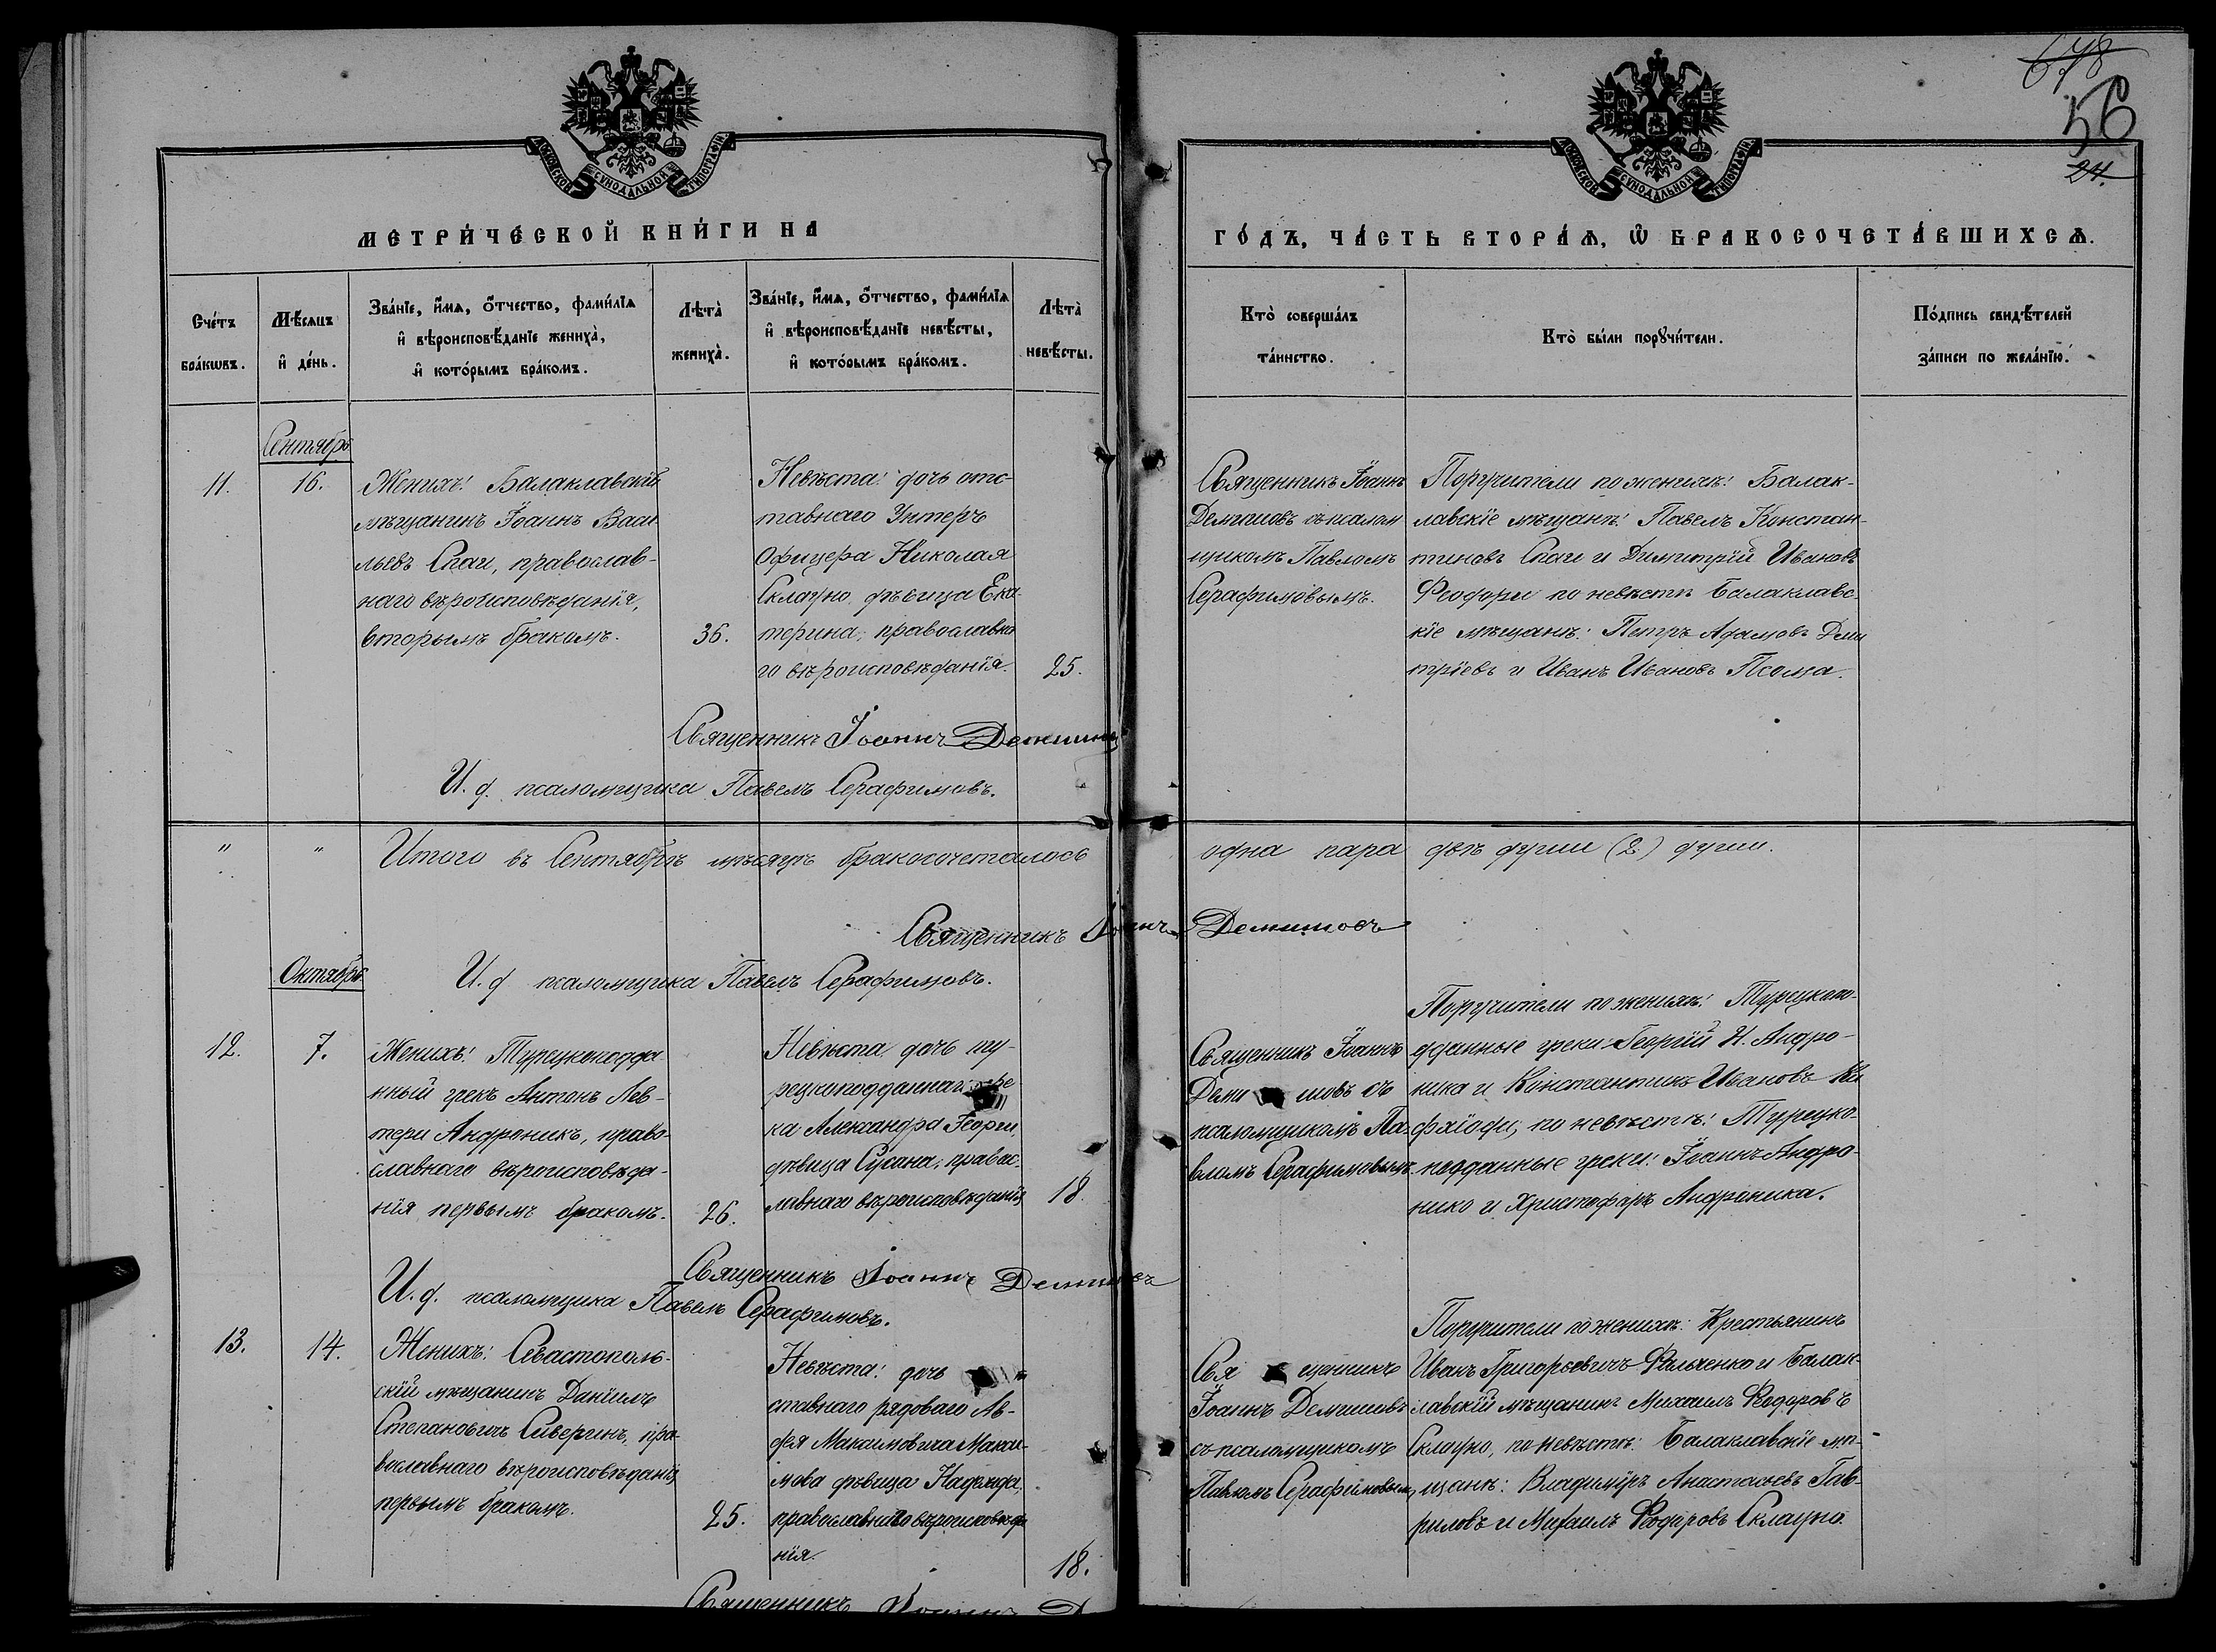 678
56
24.
МОСКОВСКОЙ СѴНОДАЛЬНОЙ ТИПОГРАФІИ
МОСКОВСКОЙ СѴНОДАЛЬНОЙ ТИПОГРАФІИ
МЕТРИ́ЧЕСКОЙ КНИ́ГИ НА
ГО́ДЪ, ЧА́СТЬ ВТОРА́Ѧ, Ѡ҆ БРАКОСОЧЕТА́ВШИХСѦ.
Сче́тъ
бра́кѡвъ.
Мѣ́сѧцъ
и҆ де́нь.
Зва́нїе, и҆́мѧ, ѻ҆́тчество, фами́лїѧ
и҆ вѣроисповѣ́данїе жениха̀,
и҆ кото́рымъ бра́комъ.
Лѣта̀
жениха̀.
Зва́нїе, и҆́мѧ, ѻ҆́тчество, фами́лїѧ
и҆ вѣроисповѣ́данїе невѣ́сты,
и҆ кото́рымъ бра́комъ.
Лѣта̀
невѣ́сты.
Кто̀ соверша́лъ
та́инство.
Кто̀ бы́ли порꙋчи́тели.
По́дпись свидѣ́телей
за́писи по жела́нїю.
Сентябрь
11.
16.
Женихъ: Балаклавскій
мѣщанинъ Іоаннъ Васи
льевъ Спаи, православ-
наго вѣроисповѣданія,
вторымъ бракомъ.
36.
Невѣста: дочь отс-
тавнаго Унтеръ
Офицера Николая
Склауно дѣвица Ека-
терина, православна
го вѣроисповѣданія.
25.
Священникъ Іоаннъ
Демишовъ съ псалом
щикомъ Павломъ
Серафимовымъ.
Поручители по женихѣ: Балак-
лавскіе мѣщанѣ: Павелъ Констан-
тиновъ Спаи и Димитрій Ивановъ
Феодори по невѣстѣ Балаклавс-
кіе мѣщанѣ: Петръ Адамовъ Дми
тріевъ и Иванъ Ивановъ Псома.
Священникъ Іоаннъ Демишовъ
И. д. псаломщика Павелъ Серафимовъ.
" " Итого въ Сентябрѣ мѣсяцѣ бракосочеталось одна пара двѣ души (2) души.
Священникъ Іоаннъ Демишовъ
Октябрь
И. д псаломщика Павелъ Серафимовъ.
12.
7.
Женихъ: Турецкоподда
нный грекъ Антонъ Лев-
тери Андроникъ, право-
славнаго вѣроисповѣда-
нія первымъ бракомъ.
26.
Невѣста: дочь ту-
рецкоподданнаго гре-
ка Александра Георги,
дѣвица Сусана, правос-
лавнаго вѣроисповѣданія
18.
Священникъ Іоаннъ
Деми шовъ съ
псаломщикомъ Па-
вломъ Серафимовымъ.
Поручители по женихѣ: Турецкопо-
дданные греки Георгій Н. Андро-
ника и Константинъ Ивановъ
по невѣстѣ: Турецко-
подданные греки: Іоаннъ Андро-
нико и Христофоръ Андроника.
Священникъ Іоаннъ Демишовъ
И. д. псаломщика Павелъ Серафимовъ.
13.
14.
Женихъ: Севастополь-
скій мѣщанинъ Даніилъ
Степановичъ Сиверинъ, пра-
вославнаго вѣроисповѣданія,
первымъ бракомъ.
25.
Невѣста: дочь
ставнаго рядоваго Ав-
дея Максимовича Макси-
мова дѣвица Надежда,
православнаго вѣроисповѣда
нія.
18.
Свя щенникъ
Іоаннъ Демишовъ
съ псаломщикомъ
Павломъ Серафимовымъ,
Поручители по женихѣ: Крестьянинъ
Иванъ Григорьевичъ Фальченко и Балак-
лавскій мѣщанинъ Михаилъ Федоровъ
Склауно, по невѣстѣ: Балаклавскіе мѣ-
щанѣ: Владиміръ Анастасьевъ Гав-
риловъ и Михаилъ Федоровъ Склауно.
Священникъ Іоаннъ